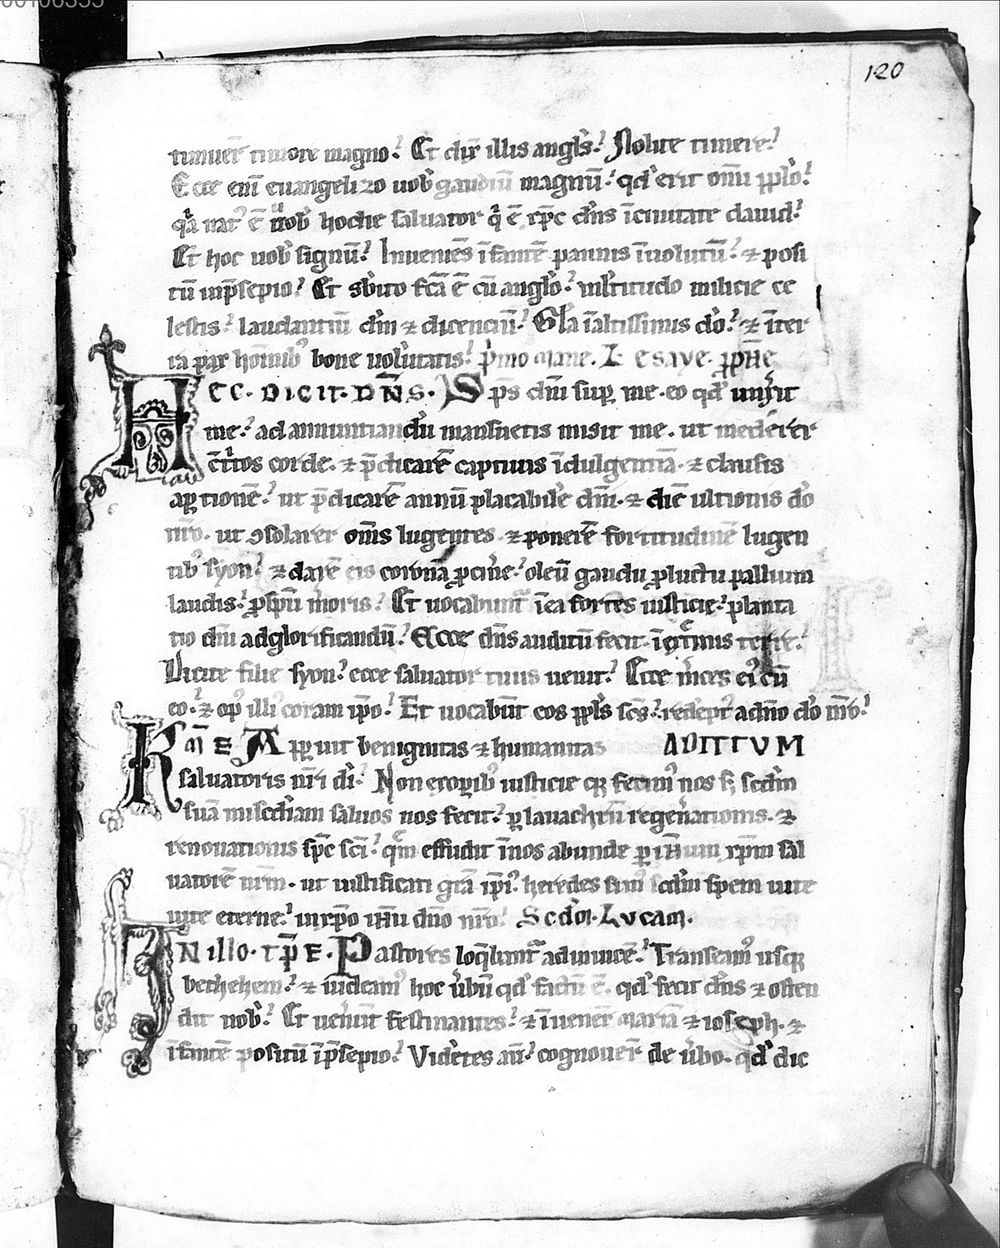 120
timuer̄ timore magno. Et dix̄ illis angls̄. Nolite timere.
Ecce eni ̄ euangelizo uob gaudiū magnū. qđ erit om̄i ppl̄o.
q̄a nat' ē uob hodie saluator q̇ ē xp̄c dn̄s ī ciuitate dauid.
Et hoc uob signū. Inuenies īfātē pannis īuolutū. ⁊ posi
tū inp̄sepio. Et sb̄ito fc̄a ē cū anglo. ml̄titudo milicie ce
lestis. laudantiū dm̄ ⁊ dicenciū. Gl̄a ialtissimis do. ⁊ īter
ra pax hoīnib' bone uolūtatis. p̄mo mane. L. esaye. pp̄he
HEC. DICIT. DN̄S. Sp̄s dnī sup me. eo qđ unx̄it
me. ad annuntiandū mansuetis misit me. ut mederer
ctritos corde. ⁊ p̄dicarē captiuis īdulgentiā. ⁊ clausis
aꝑtionē. ut p̄dicarē annū placabilē dnī. ⁊ diē ultionis do
nr̄o. ut ꝯsolarer om̄s lugentes. ⁊ ponerē fortitudinē lugen
tib' syon. ⁊ darē eis coronā ꝓ cinē. oleū gaudii ꝓ luctu pallium
laudis. ꝓ spū m̄oris. Et uocabunt' īea fortes iusticie. planta
tio dnī ad glorificandū. Ecce dn̄s auditū fecit. ī ext̄mis terre.
Dicite filie syon. ecce saluator tuus uenit. Ecce m̄ces ei' cū
eo. ⁊ op' illi' coram ip̄o. Et uocabūt eos ppl̄s sc̄s. redēpt' a dn̄o do nr̄o.
KM̄E Apparuit benignitas ⁊ humanitas AD TITUM
saluatoris nr̄i di. Non ex opib' iusticie q̄ fecim' nos s; scdm
suā misc̄diam saluos nos fecit. ꝑ lauachrū regen̄ationis. ⁊
renouationis sp̄c sc̄i. qm̄ effudit ī nos abunde ꝑ ih̄um xp̄m sal
uatorē nr̄m. ut iustificati gr̄a ip̄i'. heredes sim' scdm spem uite
uite eterne. in xp̄o ih̄u dn̄o nr̄o. Scd̄m. Lucam.
IN illo. tp̄e. Pastores loq̄bant' ad inuicē. Transeam' usq̄
bethehem. ⁊ uideam' hoc ūbū qđ factū ē. qđ fecit dn̄s ⁊ osten
dit nob'. Et uenūt festinantes. ⁊ īuener̄ mariā ⁊ ioseph. ⁊
īfātē positū ī p̄sepio. Vidētes aū. cognouer̄ de ūbo. qđ dic